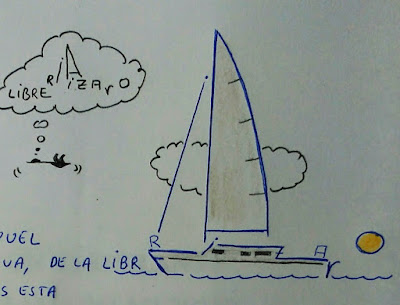 LIBRE R A iZArO
R i A r
PUEL
UA, DE LA LIBR
S ESTA